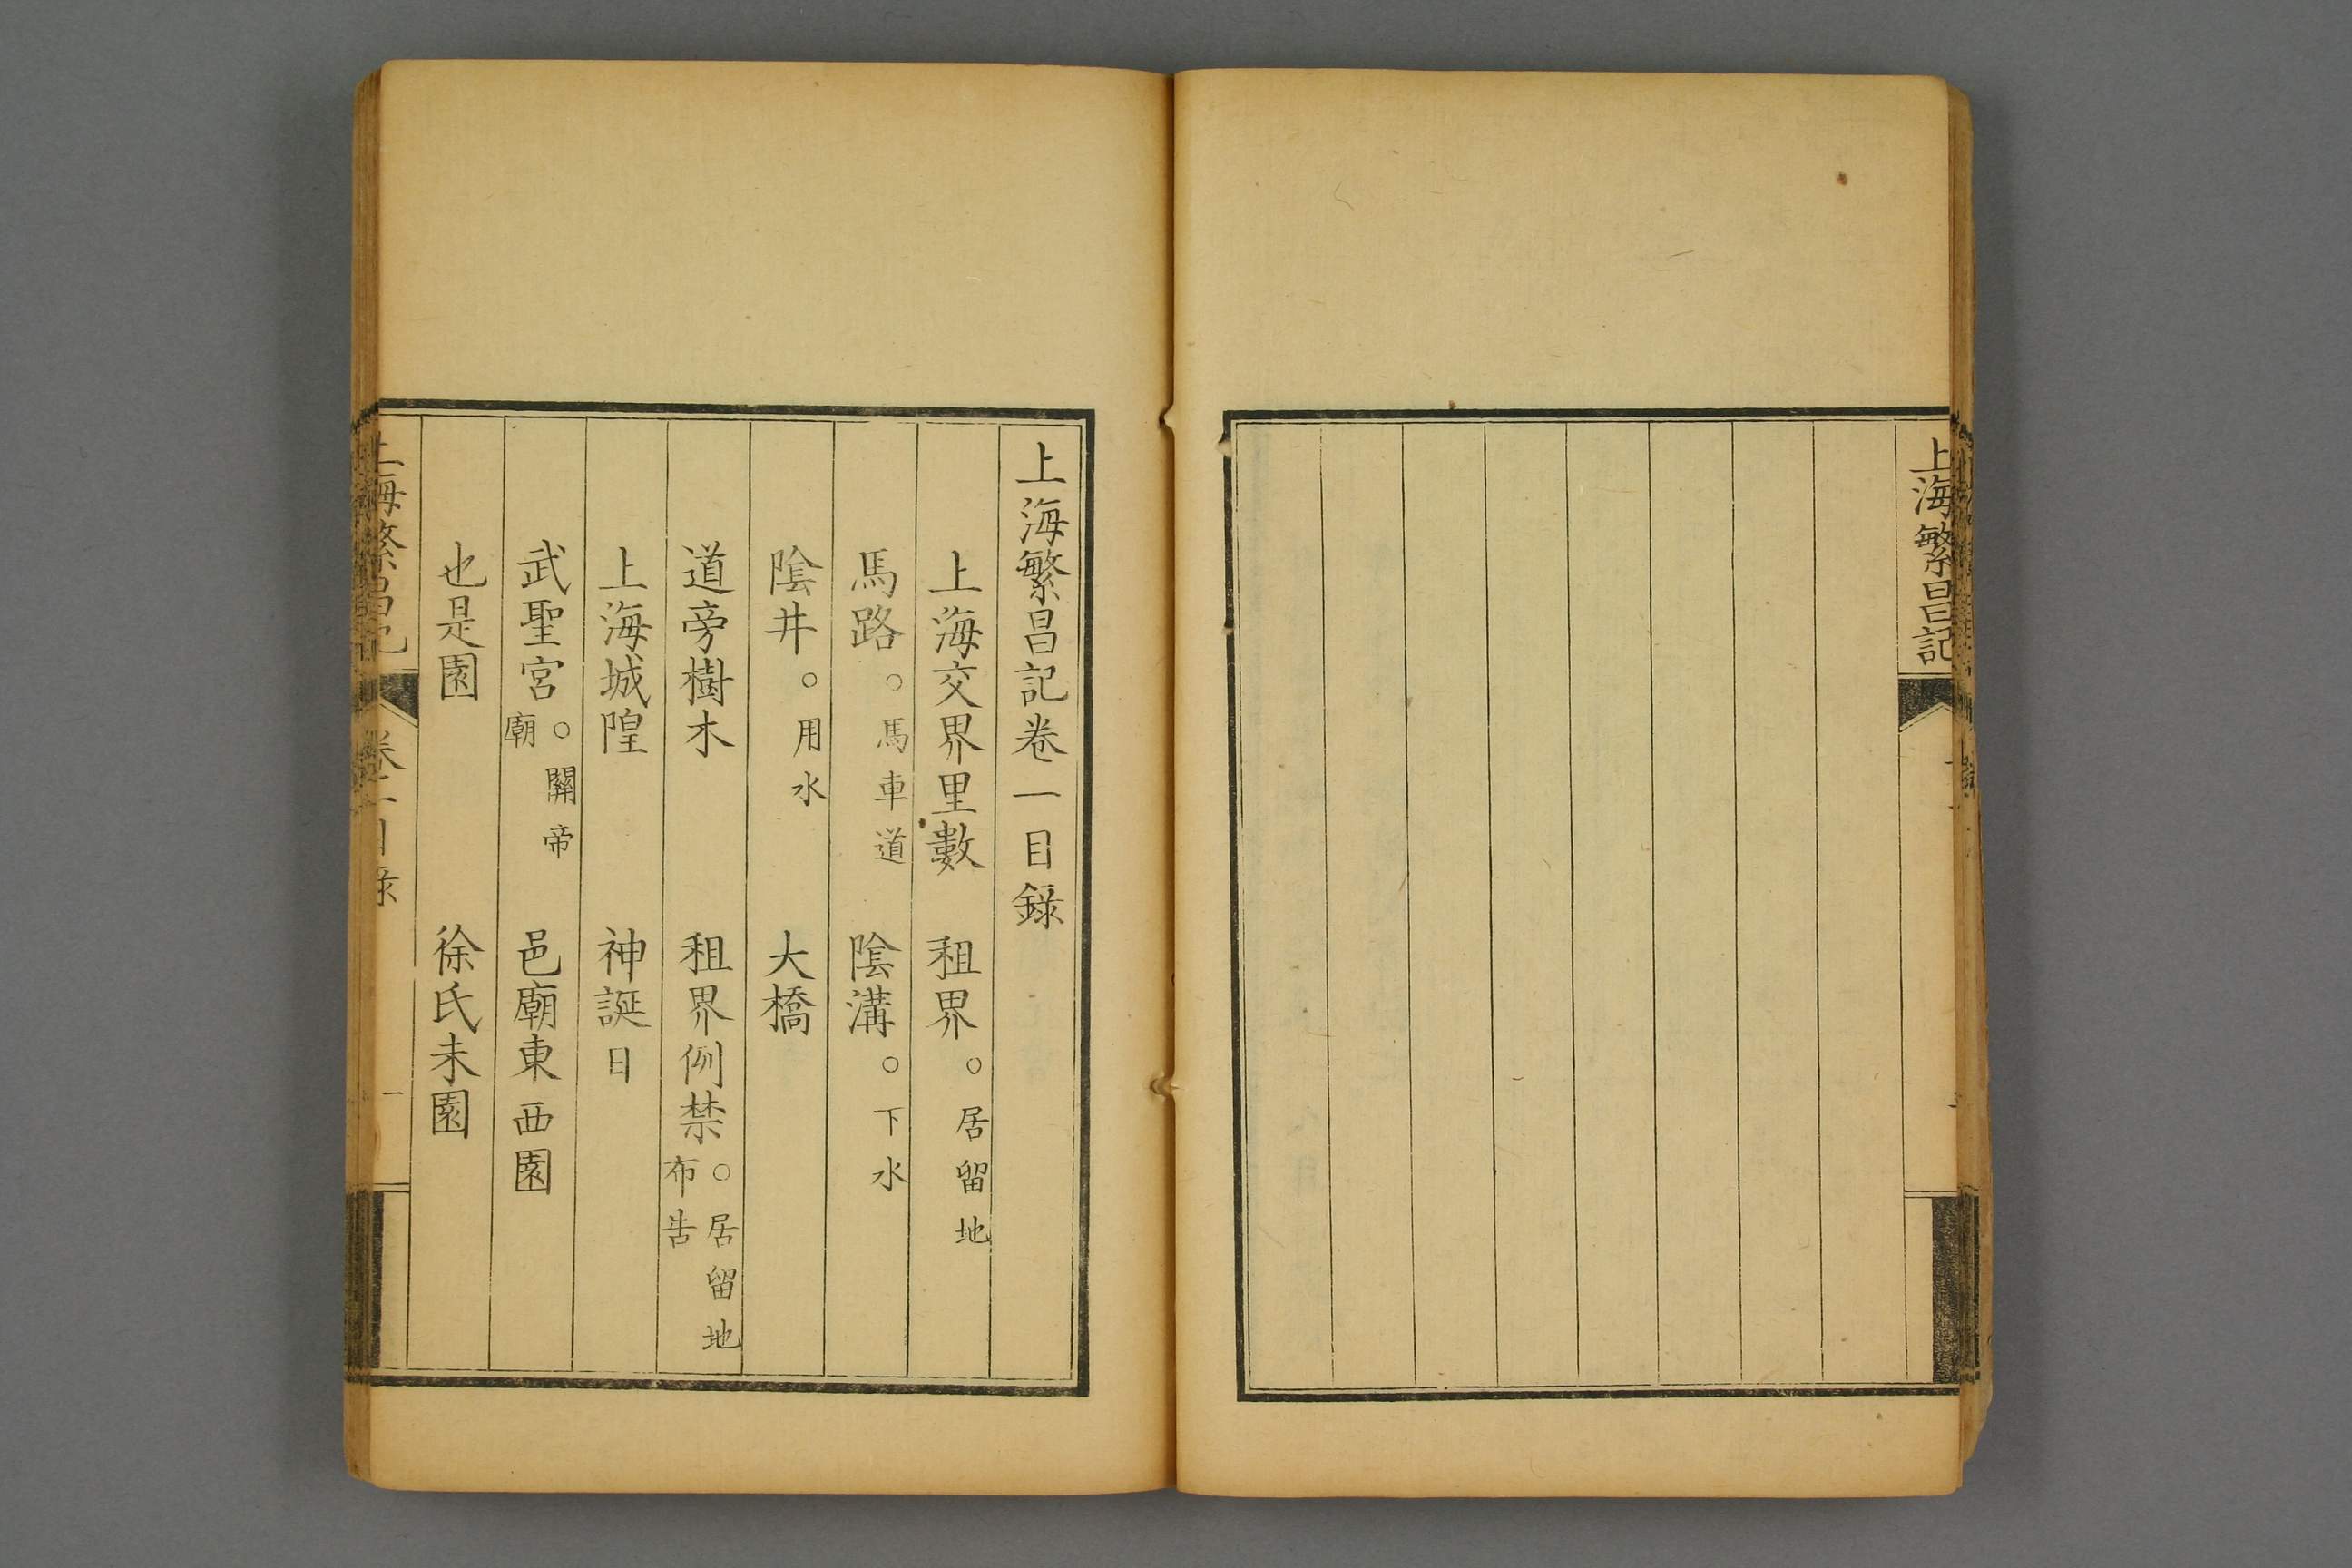 上海繁昌記
上海繁昌記卷一目錄
上海交界里數 租界○居留地
馬路○馬車道 陰溝○下水
陰井○用水 大橋
道旁樹木 租界例禁○居留地布告
上海城隍 神誕日
武聖宮○關帝廟 邑廟東西園
也是園 徐氏未園
上海繁昌記 卷一目錄 一